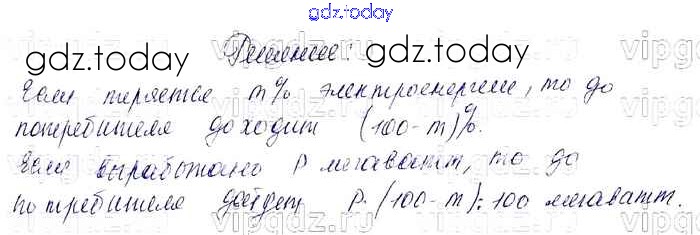 gdz.today
gdz.today Решение: gdz.today
Если теряется m% электроенергии, то до
потребителя доходит (100-m)%.
Если выработано P мегаватт, то до
потребителя дойдет P·(100-m):100 мегаватт.